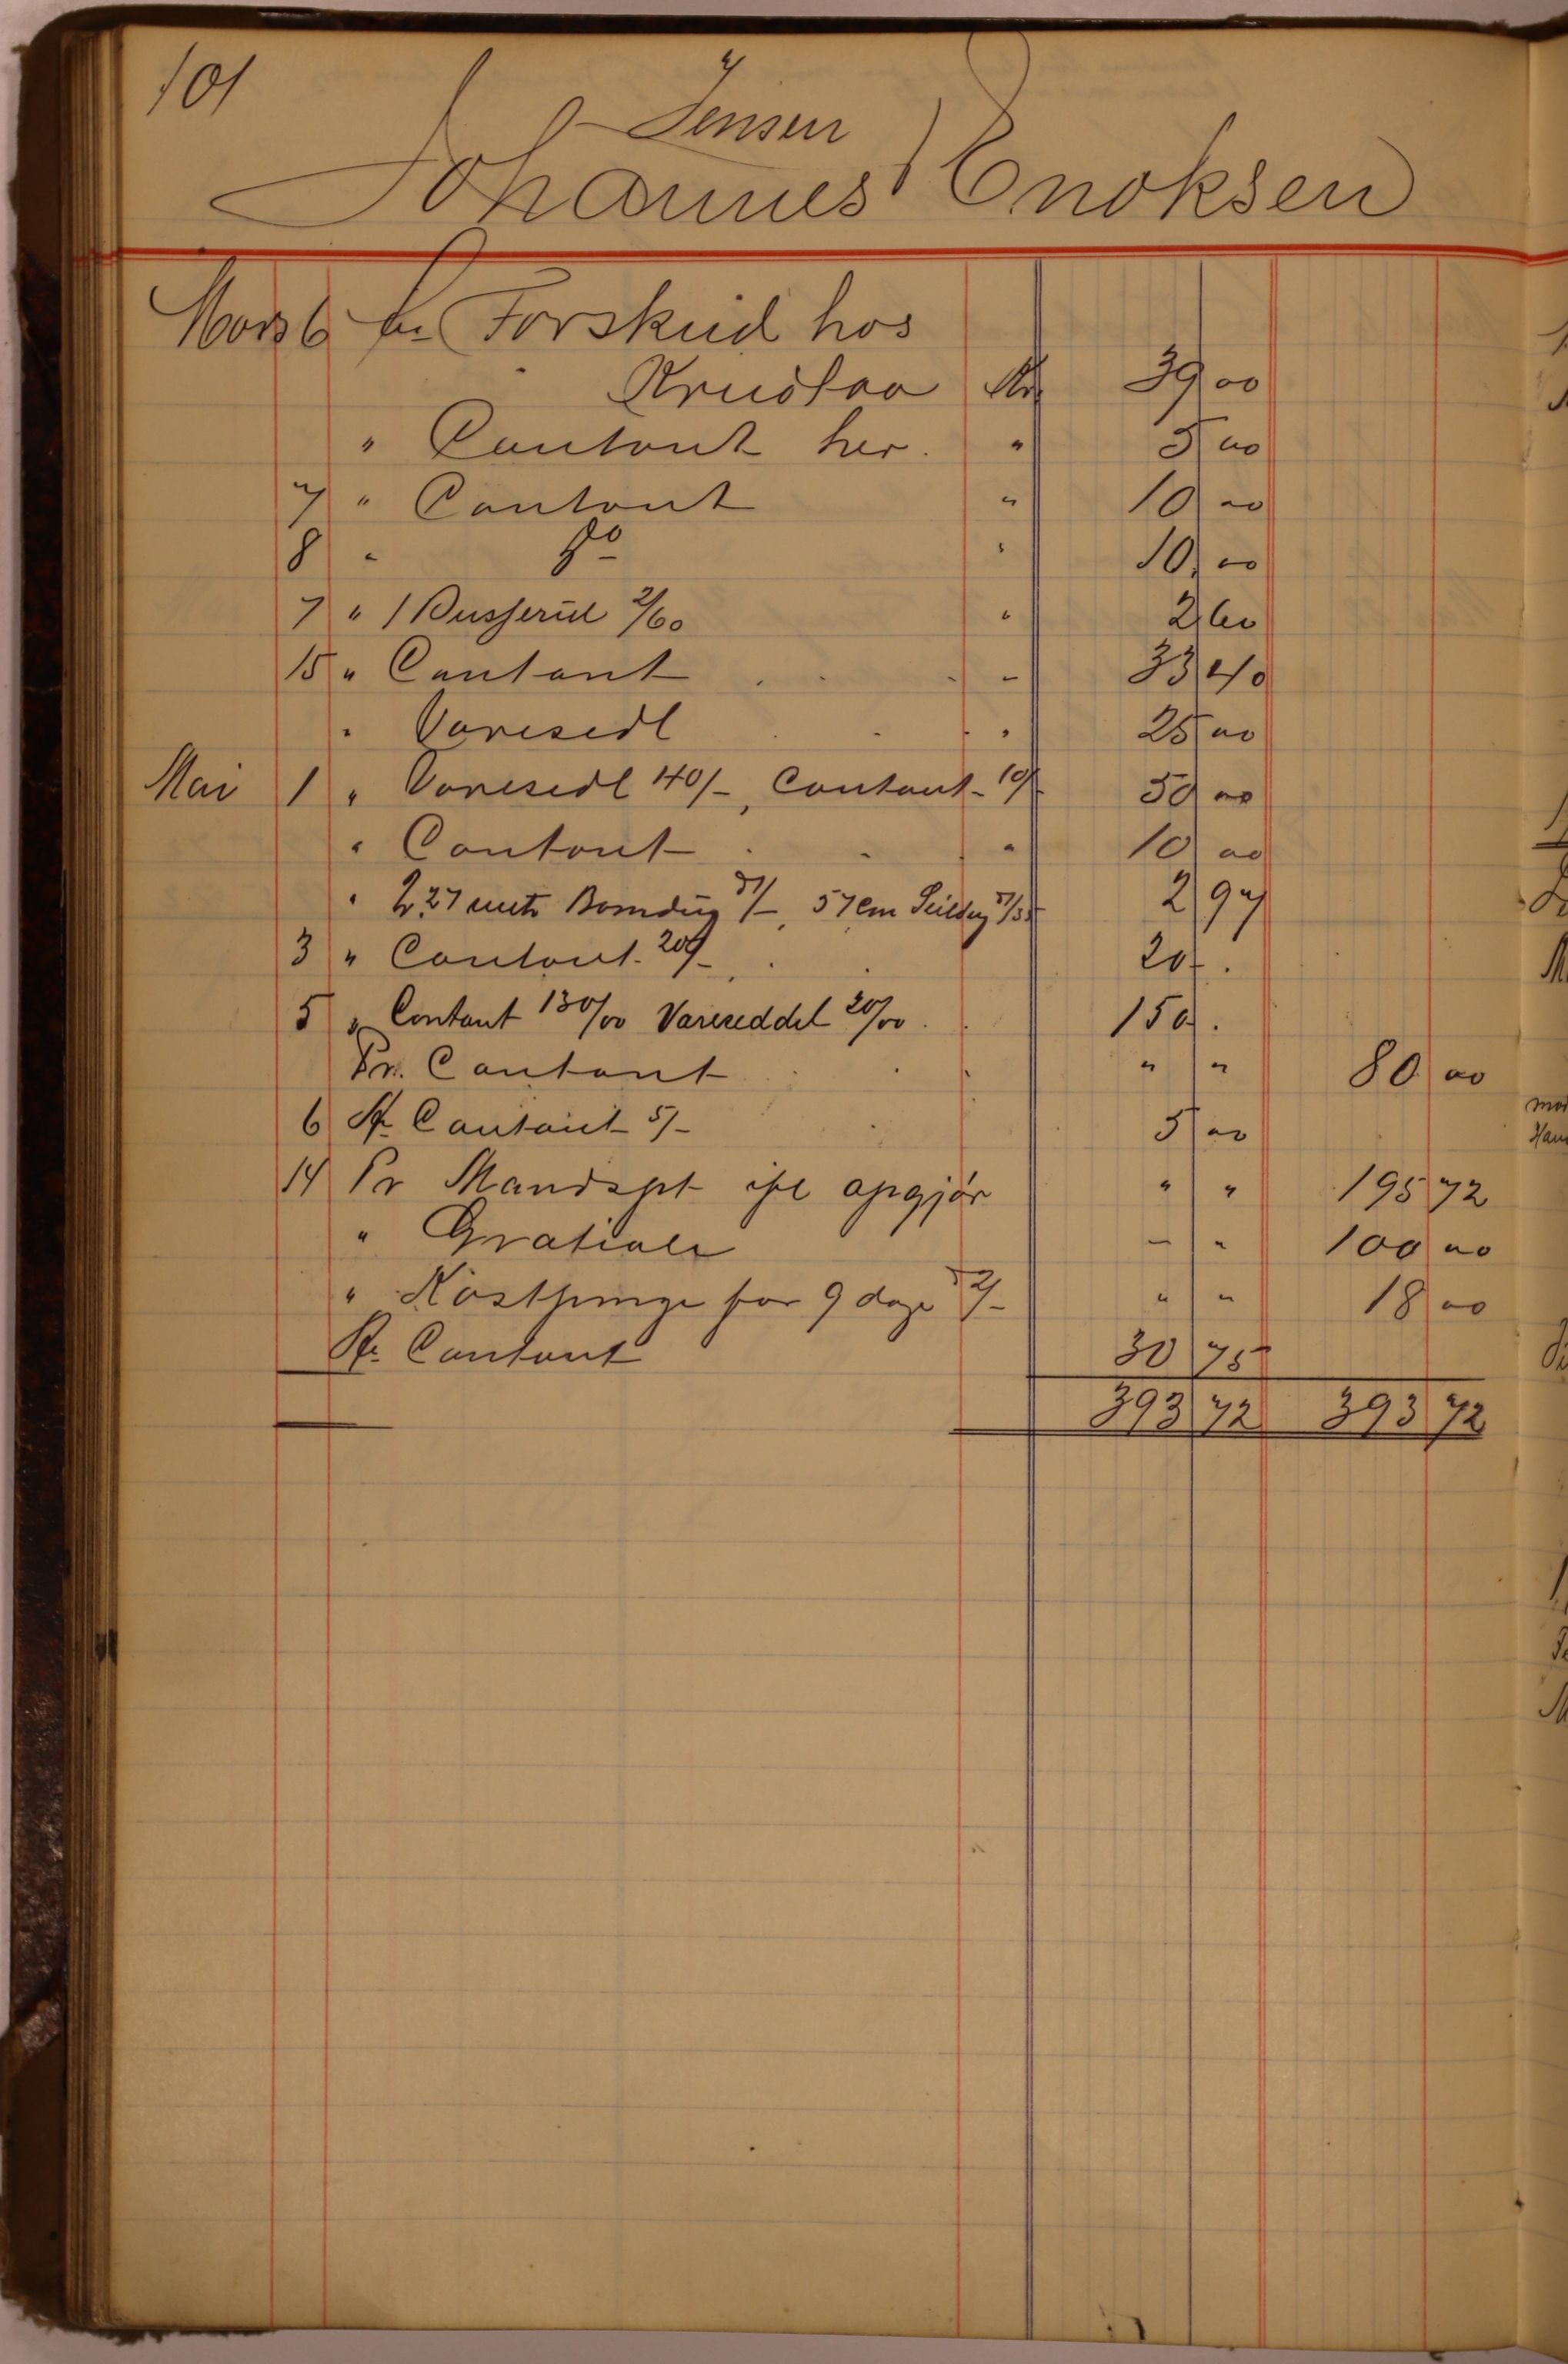 101
Jensen
Johannes Enoksen
Mars 6 An Forskud hos
Krudtaa Kr 39 00
" Contant her. " 5 00
7 " Contant " 10 00
8 " do " 10,00
7 " 1 Busserul 2/60 " 2 60
15 " Contant " 33 40
" Varesedl " 25 00
Mai 1 " Varesedl 40/-, Contant - 10/- 50 00
" Contant " 10 00
" 2,27 mtr Bomdug à 1/-, 57 cm Seildug 2 97
3 " Contant. 20/- 20 -.
5 " Contant 130/00 Vareseddel 20/00. 150.
Pr. Contant " " 80 00
6 An Contant 5/- 5 00
14 Pr Mandspt ifl opgjör " " 195 72
" Gratiale - " 100 00
" Kostpenge for 9 dage à 2/- " " 18 00
An Contant 30 75
393 72 393 72